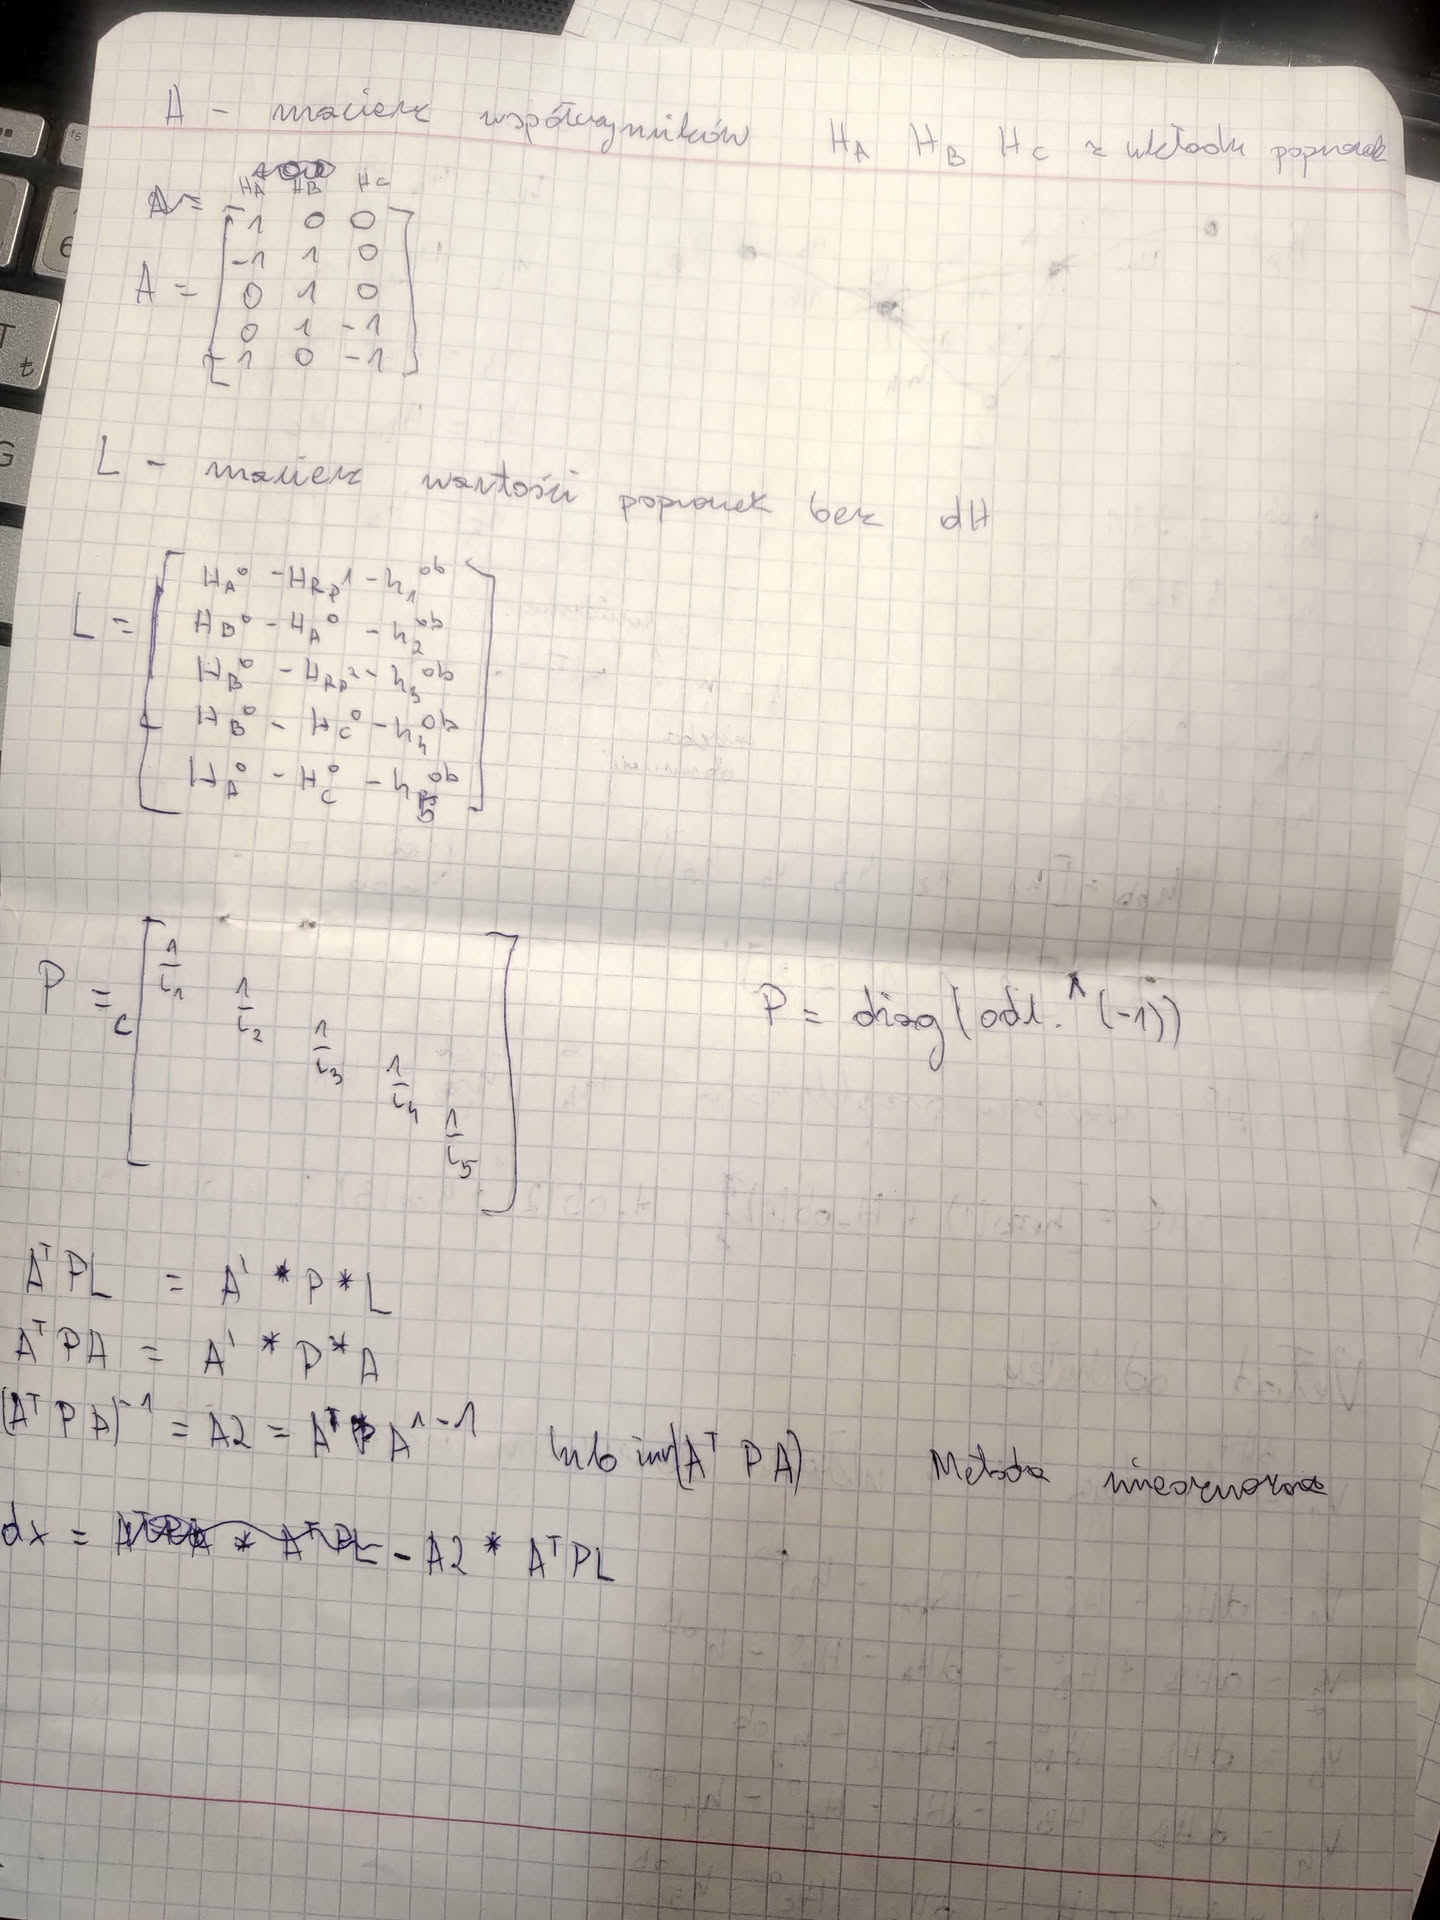 A - macierz współczynników HA HB HC z układu poprawek
HA HB HC
A = [ 1 0 0
-1 1 0
0 1 0
0 1 -1
1 0 -1 ]
L - macierz wartości poprawek bez dH
L = [ HA° - HRp1 - h1ob
HB° - HA° - h2ob
HB° - HRp2 - h3ob
HB° - HC° - h4ob
HA° - HC° - h5ob ]
P =c [ 1/L1 1/L2 1/L3 1/L4 1/L5 ]
P = diag(odl.^(-1))
AᵀPL = A' * P * L
AᵀPA = A' * P * A
(AᵀPA)⁻¹ = A2 = AᵀPA^-1 lub inv(AᵀPA) Metoda
dx = - A2 * AᵀPL